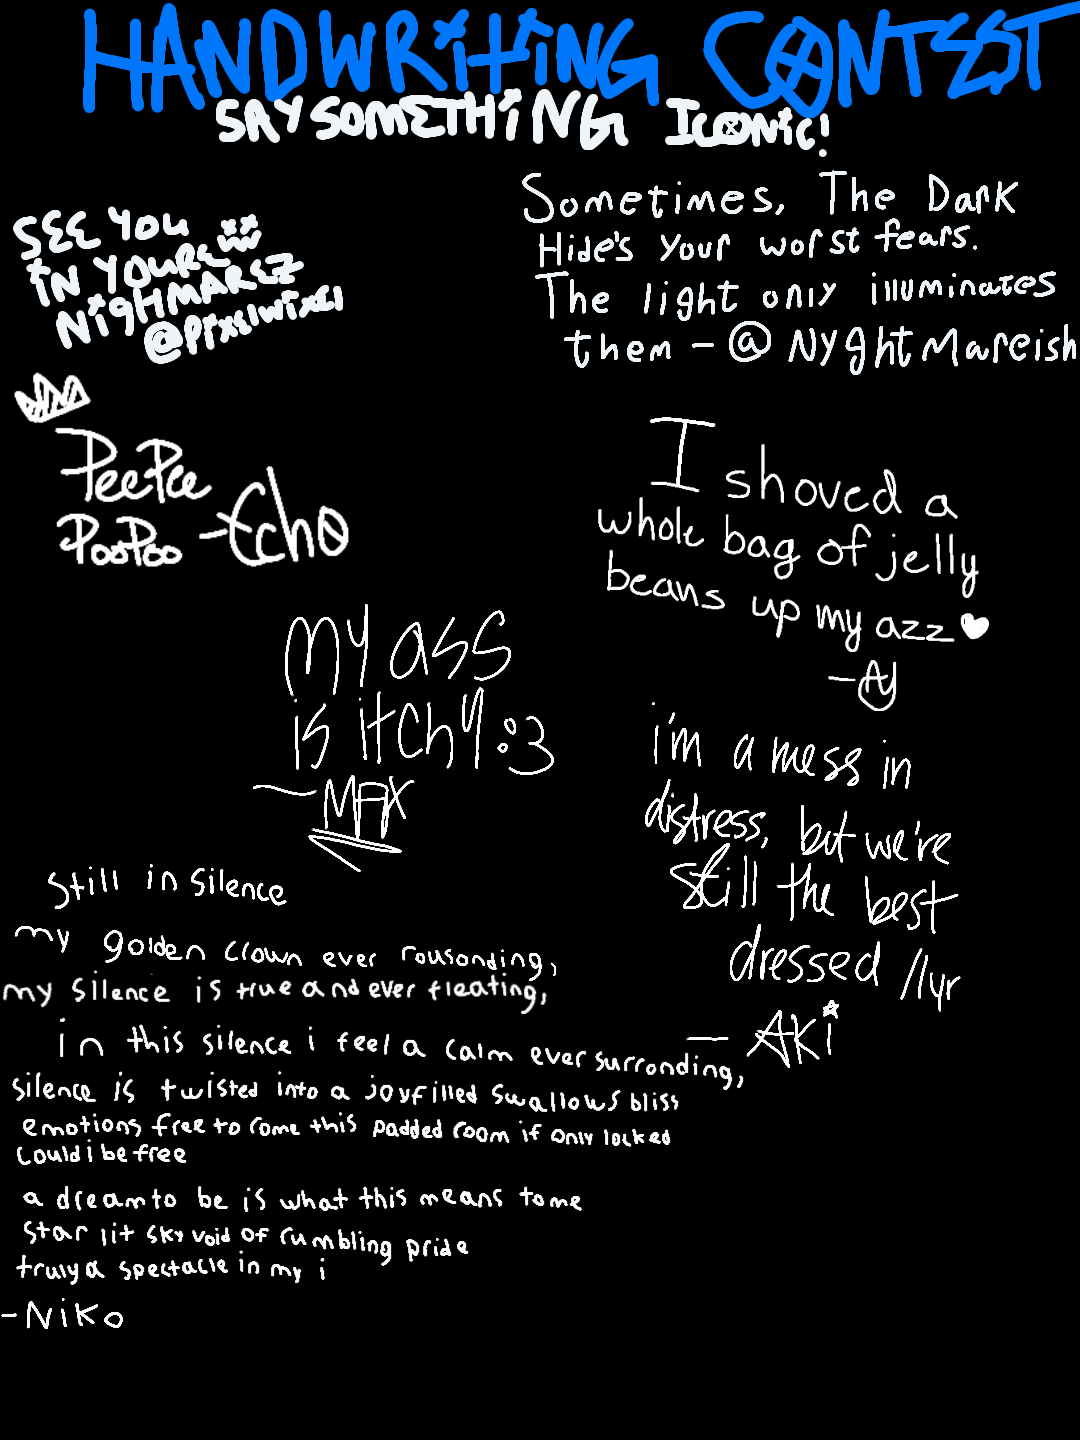 HANDWRiTING CONTEST
SAY SOMETHiNG ICONiC!
SEE YOU
iN YOURE
NiGHTMAREZ
@Pixslwixsl
Sometimes, The Dark
Hide's Your worst fears.
The light only illuminates
them - @NyghtMareish
PeePee
PooPoo -Echo
I shoved a
whole bag of jelly
beans up my azz
-AJ
my ass
is itchy :3
-MAX
i'm a mess in
distress, but we're
still the best
dressed //lyr
- AKi
Still in silence
my golden clown ever rousonding,
my silence is true and ever fleating,
in this silence i feel a calm ever surronding,
silence is twisted into a joyfilled swallows bliss
emotions free to come this padded room if only locked
could i be free
a dream to be is what this means to me
star lit sky void of rumbling pride
truly a spectacle in my i
-NiKo